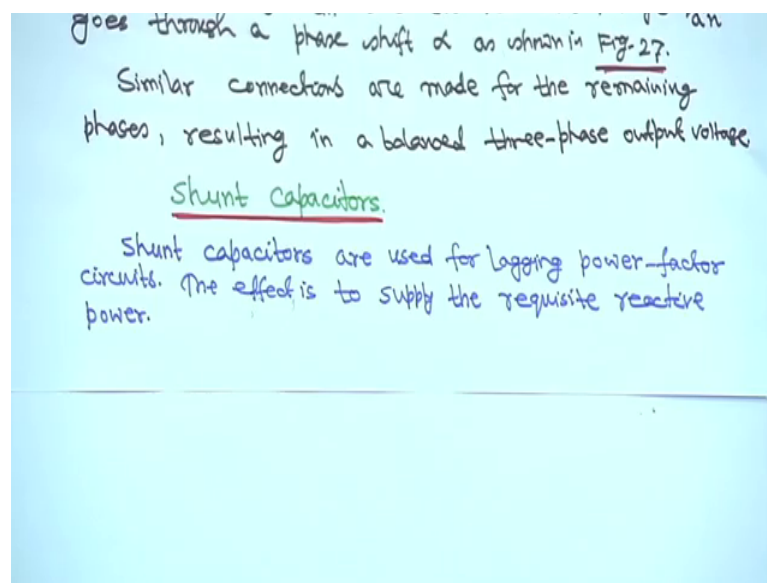 goes through a phase shift α as shown in Fig. 27.
Similar connections are made for the remaining
phases, resulting in a balanced three-phase output voltage
Shunt capacitors.
Shunt capacitors are used for lagging power-factor
circuits. The effect is to supply the requisite reactive
power.